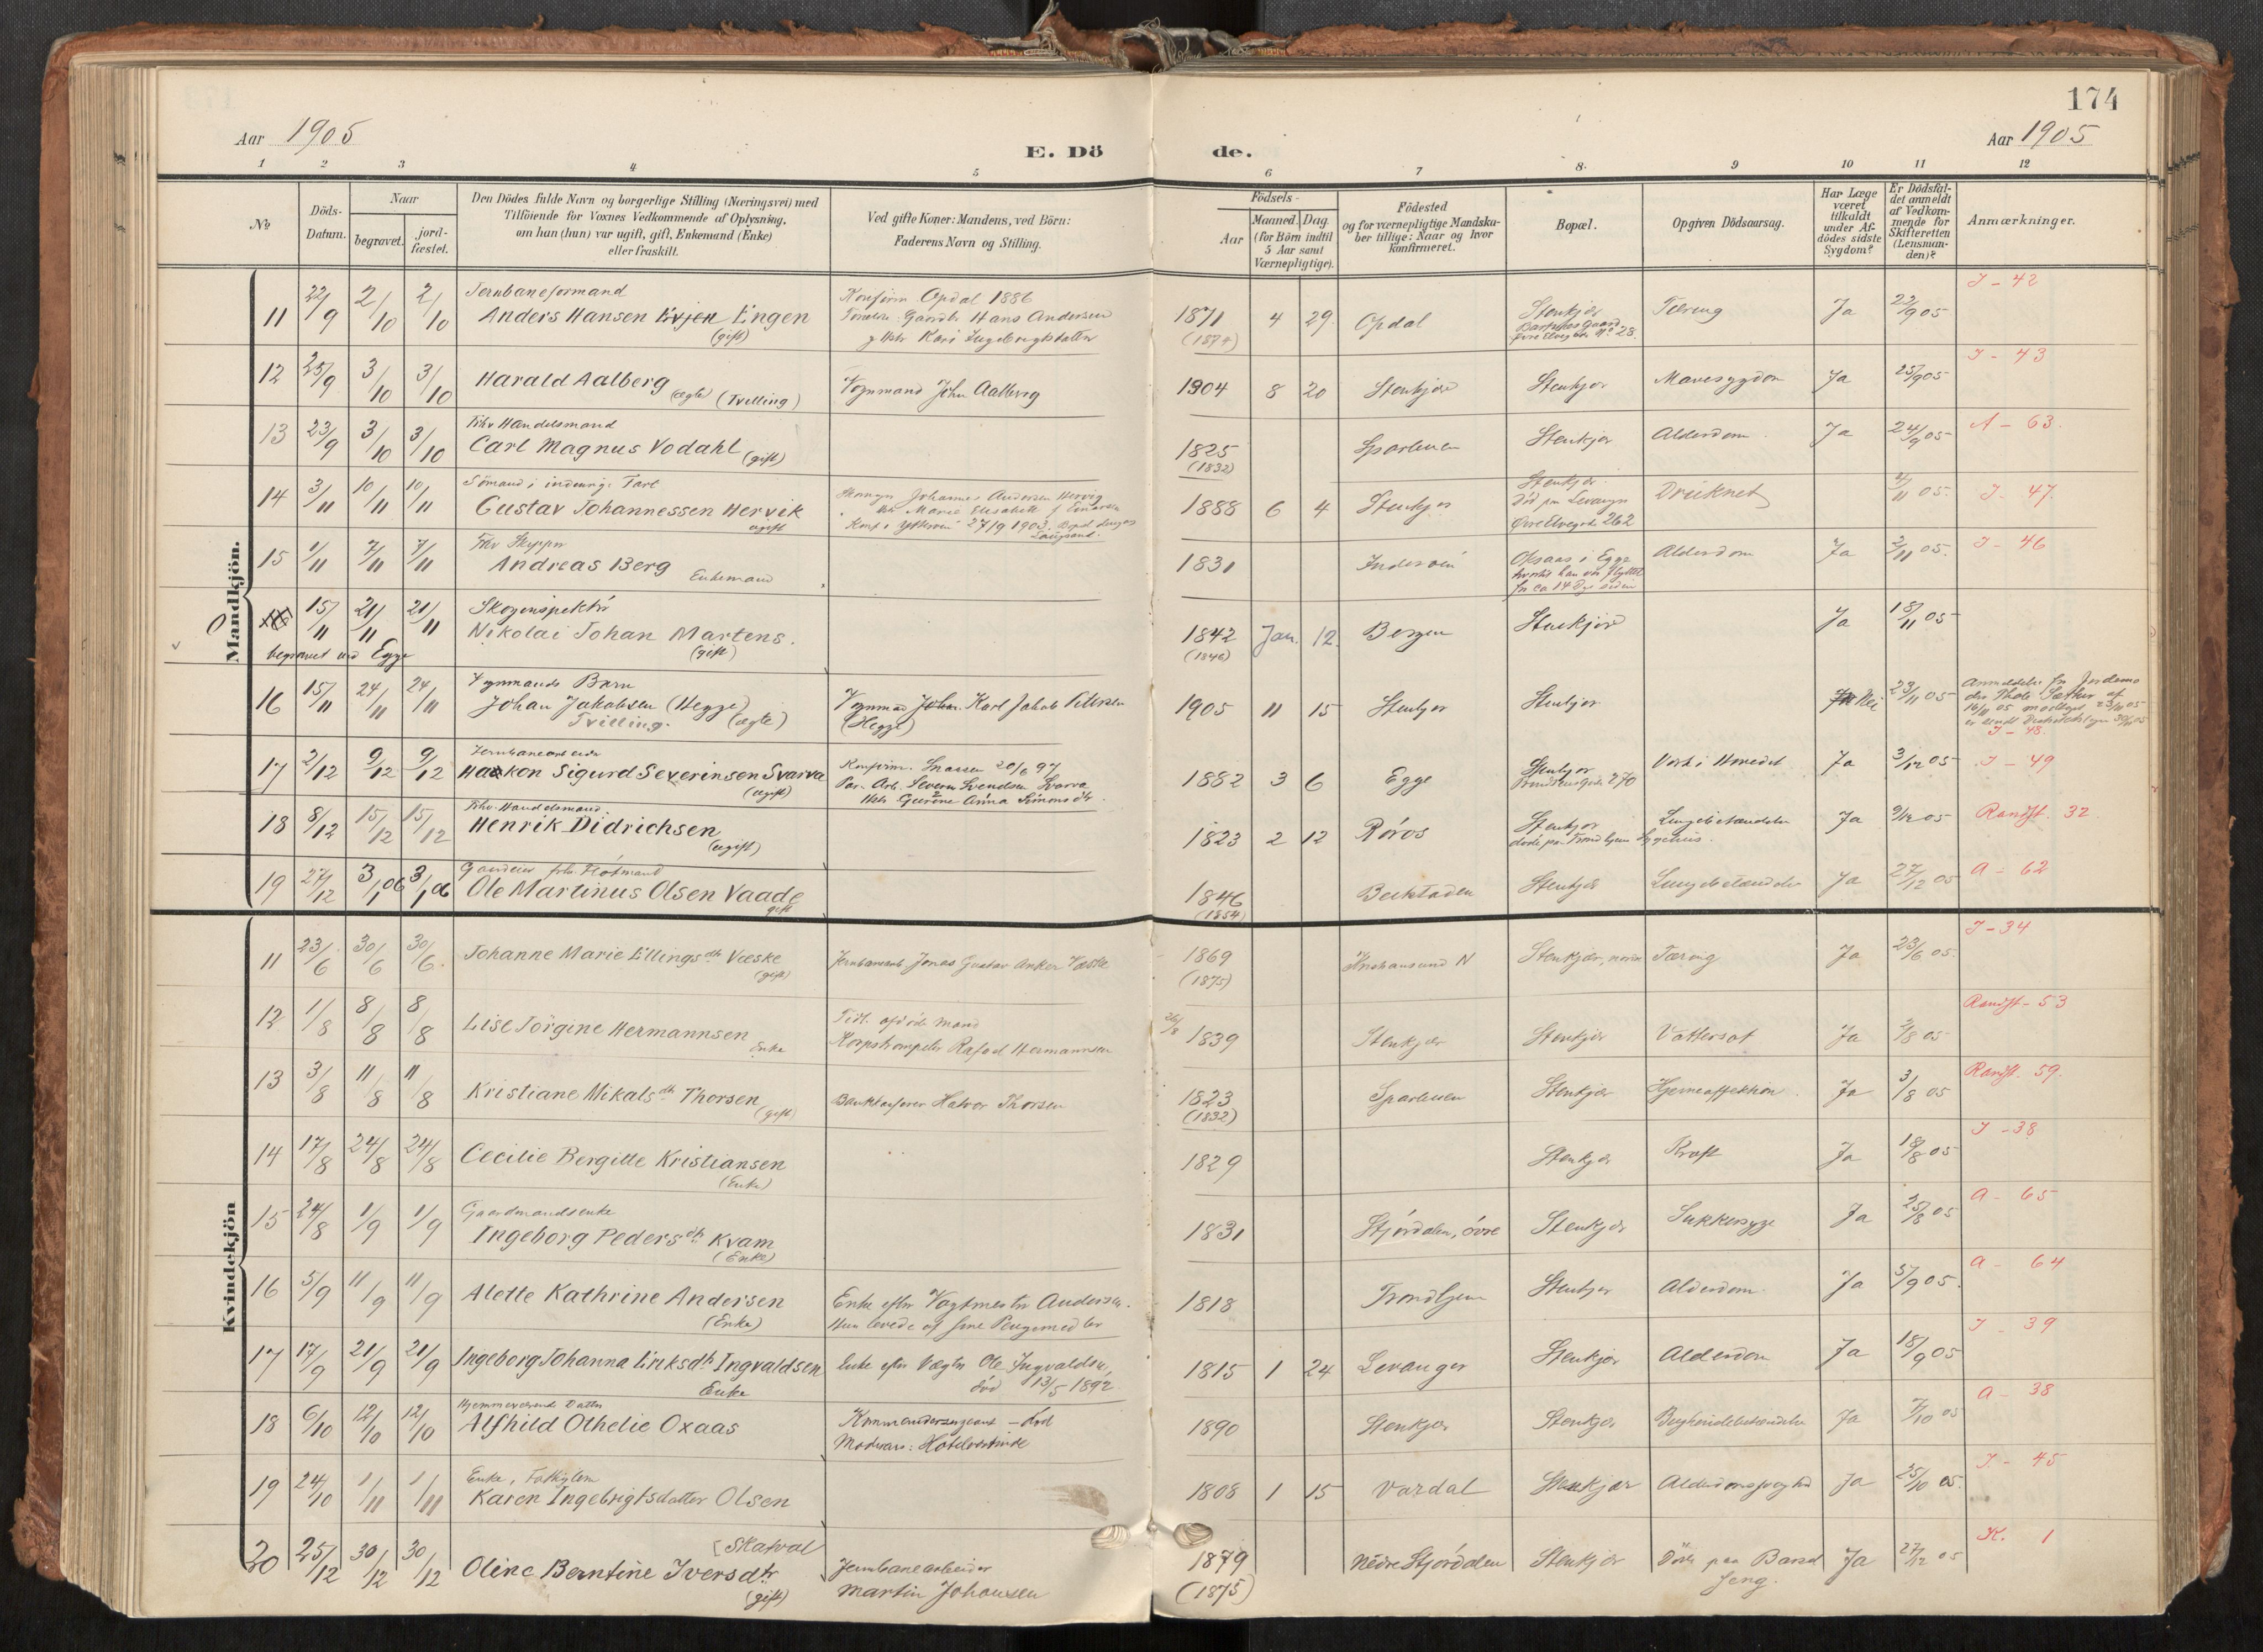 174
Aar 1905
Aar 1905
E. Dö de.
1 2 3 4 5 6 7 8. 9 10 11 12
No
Döds-Datum.
Naar
begravet.
jord-fæstet.
Den Dödes fulde Navn og borgerlige Stilling (Næringsvei) med
Tilföiende for Voxnes Vedkommende af Oplysning,
om han (hun) var ugift, gift, Enkemand (Enke)
eller fraskilt.
Ved gifte Koner: Mandens, ved Börn:
Faderens Navn og Stilling.
Födsels-
Aar
Maaned. Dag.
(for Börn indtil
5 Aar samt
Værnepligtige).
Födested
og for værnepligtige Mandska-
ber tillige: Naar og hvor
konfirmeret.
Bopæl.
Opgiven Dödsaarsag.
Har Læge
været
tilkaldt
under Af-
dödes sidste
Sygdom?
Er Dödsfal-
det anmeldt
af Vedkom-
mende for
Skifteretten
(Lensman-
den)?
Anmærkninger.
Mandkjön.
Jernbaneformand Konfirm. Opdal 1886 I - 42
11 22/9 2/10 2/10 Anders Hansen Engen (gift) Hans Andersen 1871 4 29 Opdal Stenkjer Tæring Ja 22/9 05
(1874)
12 25/9 3/10 3/10 Harald Aalberg (ægte) (Tvilling) Vognmand John Aalberg 1904 8 20 Stenkjær Stenkjer Mavesygdom Ja 25/9 05 I - 43
Fhv Handelsmand
13 23/9 3/10 3/10 Carl Magnus Vodahl (gift) 1825 Sparbuen Stenkjer Alderdom Ja 24/9 05 A - 63.
(1832)
Sömand i
14 3/11 10/11 10/11 Gustav Johannessen Hervik ugift 1888 6 4 Stenkjer Stenkjer. Druknet 4/11 05. I - 47.
Øvre Elvegade 262
Fhv Skipper
15 1/11 7/11 7/11 Andreas Berg Enkemand 1831 Inderøen i Egge Alderdom Ja 2/11 05. I - 46
hvortil han var flyttet
for ca 14 Dge siden
Skoginspektör
15/11 21/11 21/11 Nikolai Johan Martens. (gift) 1842 Jan. 12. Bergen Stenkjær Ja 18/11 05
(1846)
begravet ved Egge
Vognmands Barn
16 15/11 24/11 24/11 Johan Jakobsen (Hegge) (ægte) Vognmand Karl Jakob Petersen 1905 11 15 Stenkjer Stenkjer Nei 23/11 05
Tvilling. (Hegge)
I - 48.
Jernbanearbeider Konfirm. Snaasen 20/6 97
17 2/12 9/12 9/12 Haakon Sigurd Severinsen Svarva (ugift) Severin Svendsen Svarva 1882 3 6 Egge Stenkjer Ja 3/12 05 I - 49
Anna Simonsdtr.
Fhv. Handelsmand.
18 8/12 15/12 15/12 Henrik Didrichsen (ugift) 1823 2 12 Röros Stenkjer Lungebetændelse Ja 9/12 05 Randft. 32
Gaardeier fhv.
19 27/12 3/1 06 3/1 06 Ole Martinus Olsen Vaade gift 1846 Beitstaden Stenkjer Lungebetændelse Ja 27/12 05 A - 62
(1854)
Kvindekjön
11 23/6 30/6 30/6 Johanne Marie Ellingsdtr Væske (gift) Jernbanearb. Jonas Gustav Anker Væske 1869 Kristiansund N Stenkjær Tæring Ja 23/6 05. I - 34
(1875)
12 1/8 8/8 8/8 Lise Jörgine Hermannsen Enke Tidl. afdöde Mand 26/8 1839 Stenkjær Stenkjer Vattersot Ja 2/8 05 Randft - 53
Korpstrompeter Rafael Hermannsen
13 3/8 11/8 11/8 Kristiane Mikalsdtr Thorsen (gift) Bankkasserer Halvor Thorsen 1823 Sparbuen Stenkjær Hjerneaffektion. Ja 3/8 05 Randft. 59.
(1832)
14 17/8 24/8 24/8 Cecilie Bergitte Kristiansen (Enke) 1829 Stenkjer Kræft Ja 18/8 05 I - 38
Gaardmandsenke
15 24/8 1/9 1/9 Ingeborg Pedersdtr Kvam (Enke) 1831 Stjördalen, övre Stenkjer Sukkersyge Ja 25/8 05 A - 65
16 5/9 11/9 11/9 Alette Kathrine Andersen (Enke) Enke efter Vagtmester Andersen. 1818 Trondhjem Stenkjer Alderdom Ja 5/9 05. A - 64
Hun levede af sine Pengemidler
17 17/9 21/9 21/9 Ingeborg Johanna Eriksdtr Ingvaldsen Enke Enke efter Vægter Ole Ingvaldsen, 1815 1 24 Levanger Stenkjer Alderdom Ja 18/9 05 I - 39
död 13/5 1892.
Hjemmeværende Datter
18 6/10 12/10 12/10 Alfhild Othelie Oxaas Kommandersergeant - död 1890 Stenkjer Stenkjer Ja 7/10 05 A - 38
Moderen: Hotelvertinde
Enke, Fattiglem
19 24/10 1/11 1/11 Karen Ingebrigtsdatter Olsen 1808 1 15 Vardal Stenkjær Ja 25/10 05. I - 45
[Skatval
20 25/12 30/12 30/12 Oline Berntine Iversdtr. (gift) Jernbanearbeider 1879 Nedre Stjórdalen Stenkjer Döde paa Barsel Ja 27/12 05 K. 1
Martin Johansen (1875) seng.